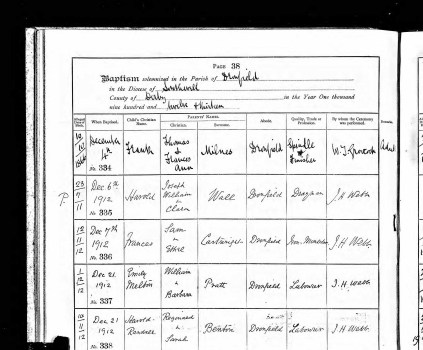 PAGE 38
Baptism solemnized in the Parish of Dronfield
in the Diocese of Southwell
County of Derby in the Year One thousand
nine hundred and twelve & thirteen
When Baptized. Child's Christian Name. PARENTS' NAMES. Christian. Surname. Abode. Quality, Trade or Profession. By whom the Ceremony was performed.
December 4th No. 334 Frank Thomas & Frances Ann Milnes Dronfield Spindle Finisher
23 9 11 Dec 6th 1912 No. 335 Harold Joseph William & Clara Wall Dronfield Drayman J H Webb
P.
12 11 12 Dec 7th 1912 No. 336 Frances Sam & Ethel Cartwright Dronfield Iron Moulder J H Webb
1 12 12 Dec 21 1912 No. 337 Emily William & Barbara Pratt Dronfield Labourer J. H Webb
10 11 12 Dec 21 1912 No. 338 Harold & Sarah Dronfield Labourer J H Webb